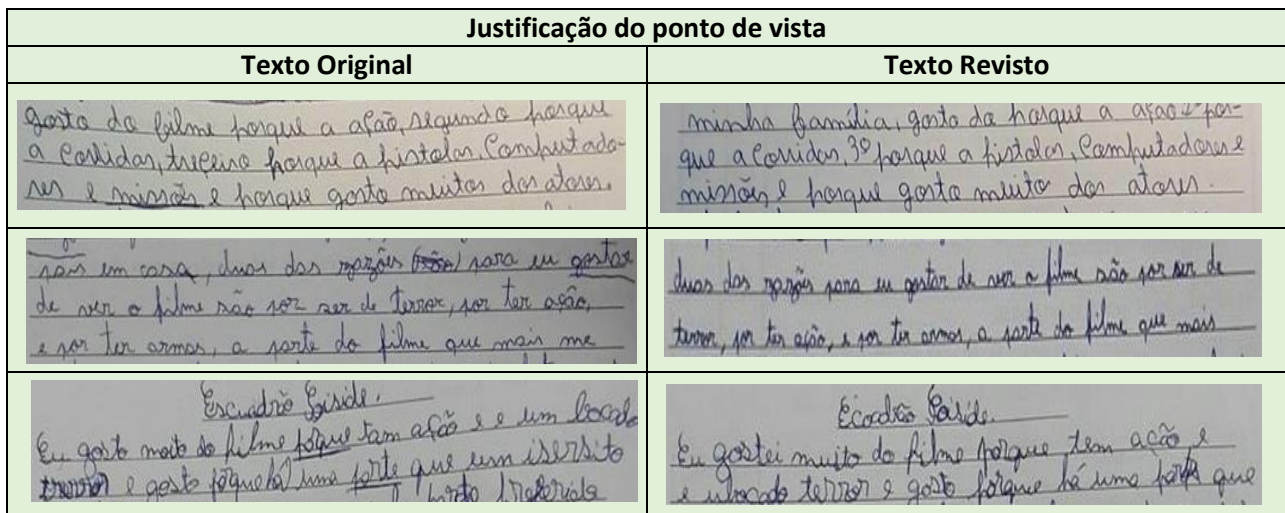 Justificação do ponto de vista
Texto Original
Texto Revisto
gosto do filme porque a ação, segundo porque
a corridas, treceiro porque a pistolas, computado-
res e missões e porque gosto muitos dos atores.
minha família, gosto do porque a ação 2º por-
que a corridas, 3º porque a pistolas, computadores e
missões e porque gosto muito dos atores.
em casa, duas das razões para eu gostar
de ver o filme são por ser de terror, por ter ação,
e por ter armas, a parte do filme que mais me
duas das razões para eu gostar de ver o filme são por ser de
terror, por ter ação, e por ter armas, a parte do filme que mais
Escuadrão
Eu gosto moito do filme porque tam ação e e um bocado
e gosto porque há uma porte que um isersito
Ecodrão
Eu gostei muito do filme porque tem acção e
e ubocado terror e gosto porque há uma que